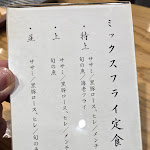 ミックスフライ定食
・特上
ササミ／黒豚ロース、ヒレ、メンチ
旬の魚／海老フライ
・上
ササミ／黒豚ロース、ヒレ、メンチ
旬の魚
・蓮
ササミ／黒豚ロース、ヒレ／旬の